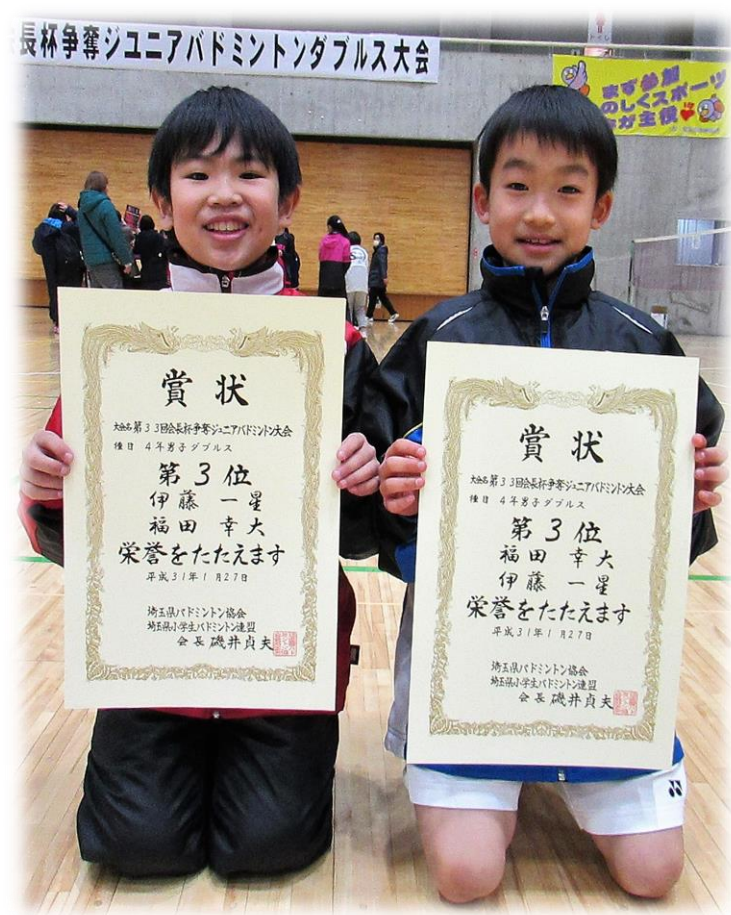 長杯争奪ジュニアバドミントンダブルス大会
まず参加
のしくスポーツ
が主役
賞状
大会名 第33回会長杯争奪ジュニアバドミントン大会
種目 4年男子ダブルス
第3位
伊藤 一星
福田 幸大
栄誉をたたえます
平成31年1月27日
埼玉県バドミントン協会
埼玉県小学生バドミントン連盟
会長 磯井貞夫
賞状
大会名 第33回会長杯争奪ジュニアバドミントン大会
種目 4年男子ダブルス
第3位
福田 幸大
伊藤 一星
栄誉をたたえます
平成31年1月27日
埼玉県バドミントン協会
埼玉県小学生バドミントン連盟
会長 磯井貞夫